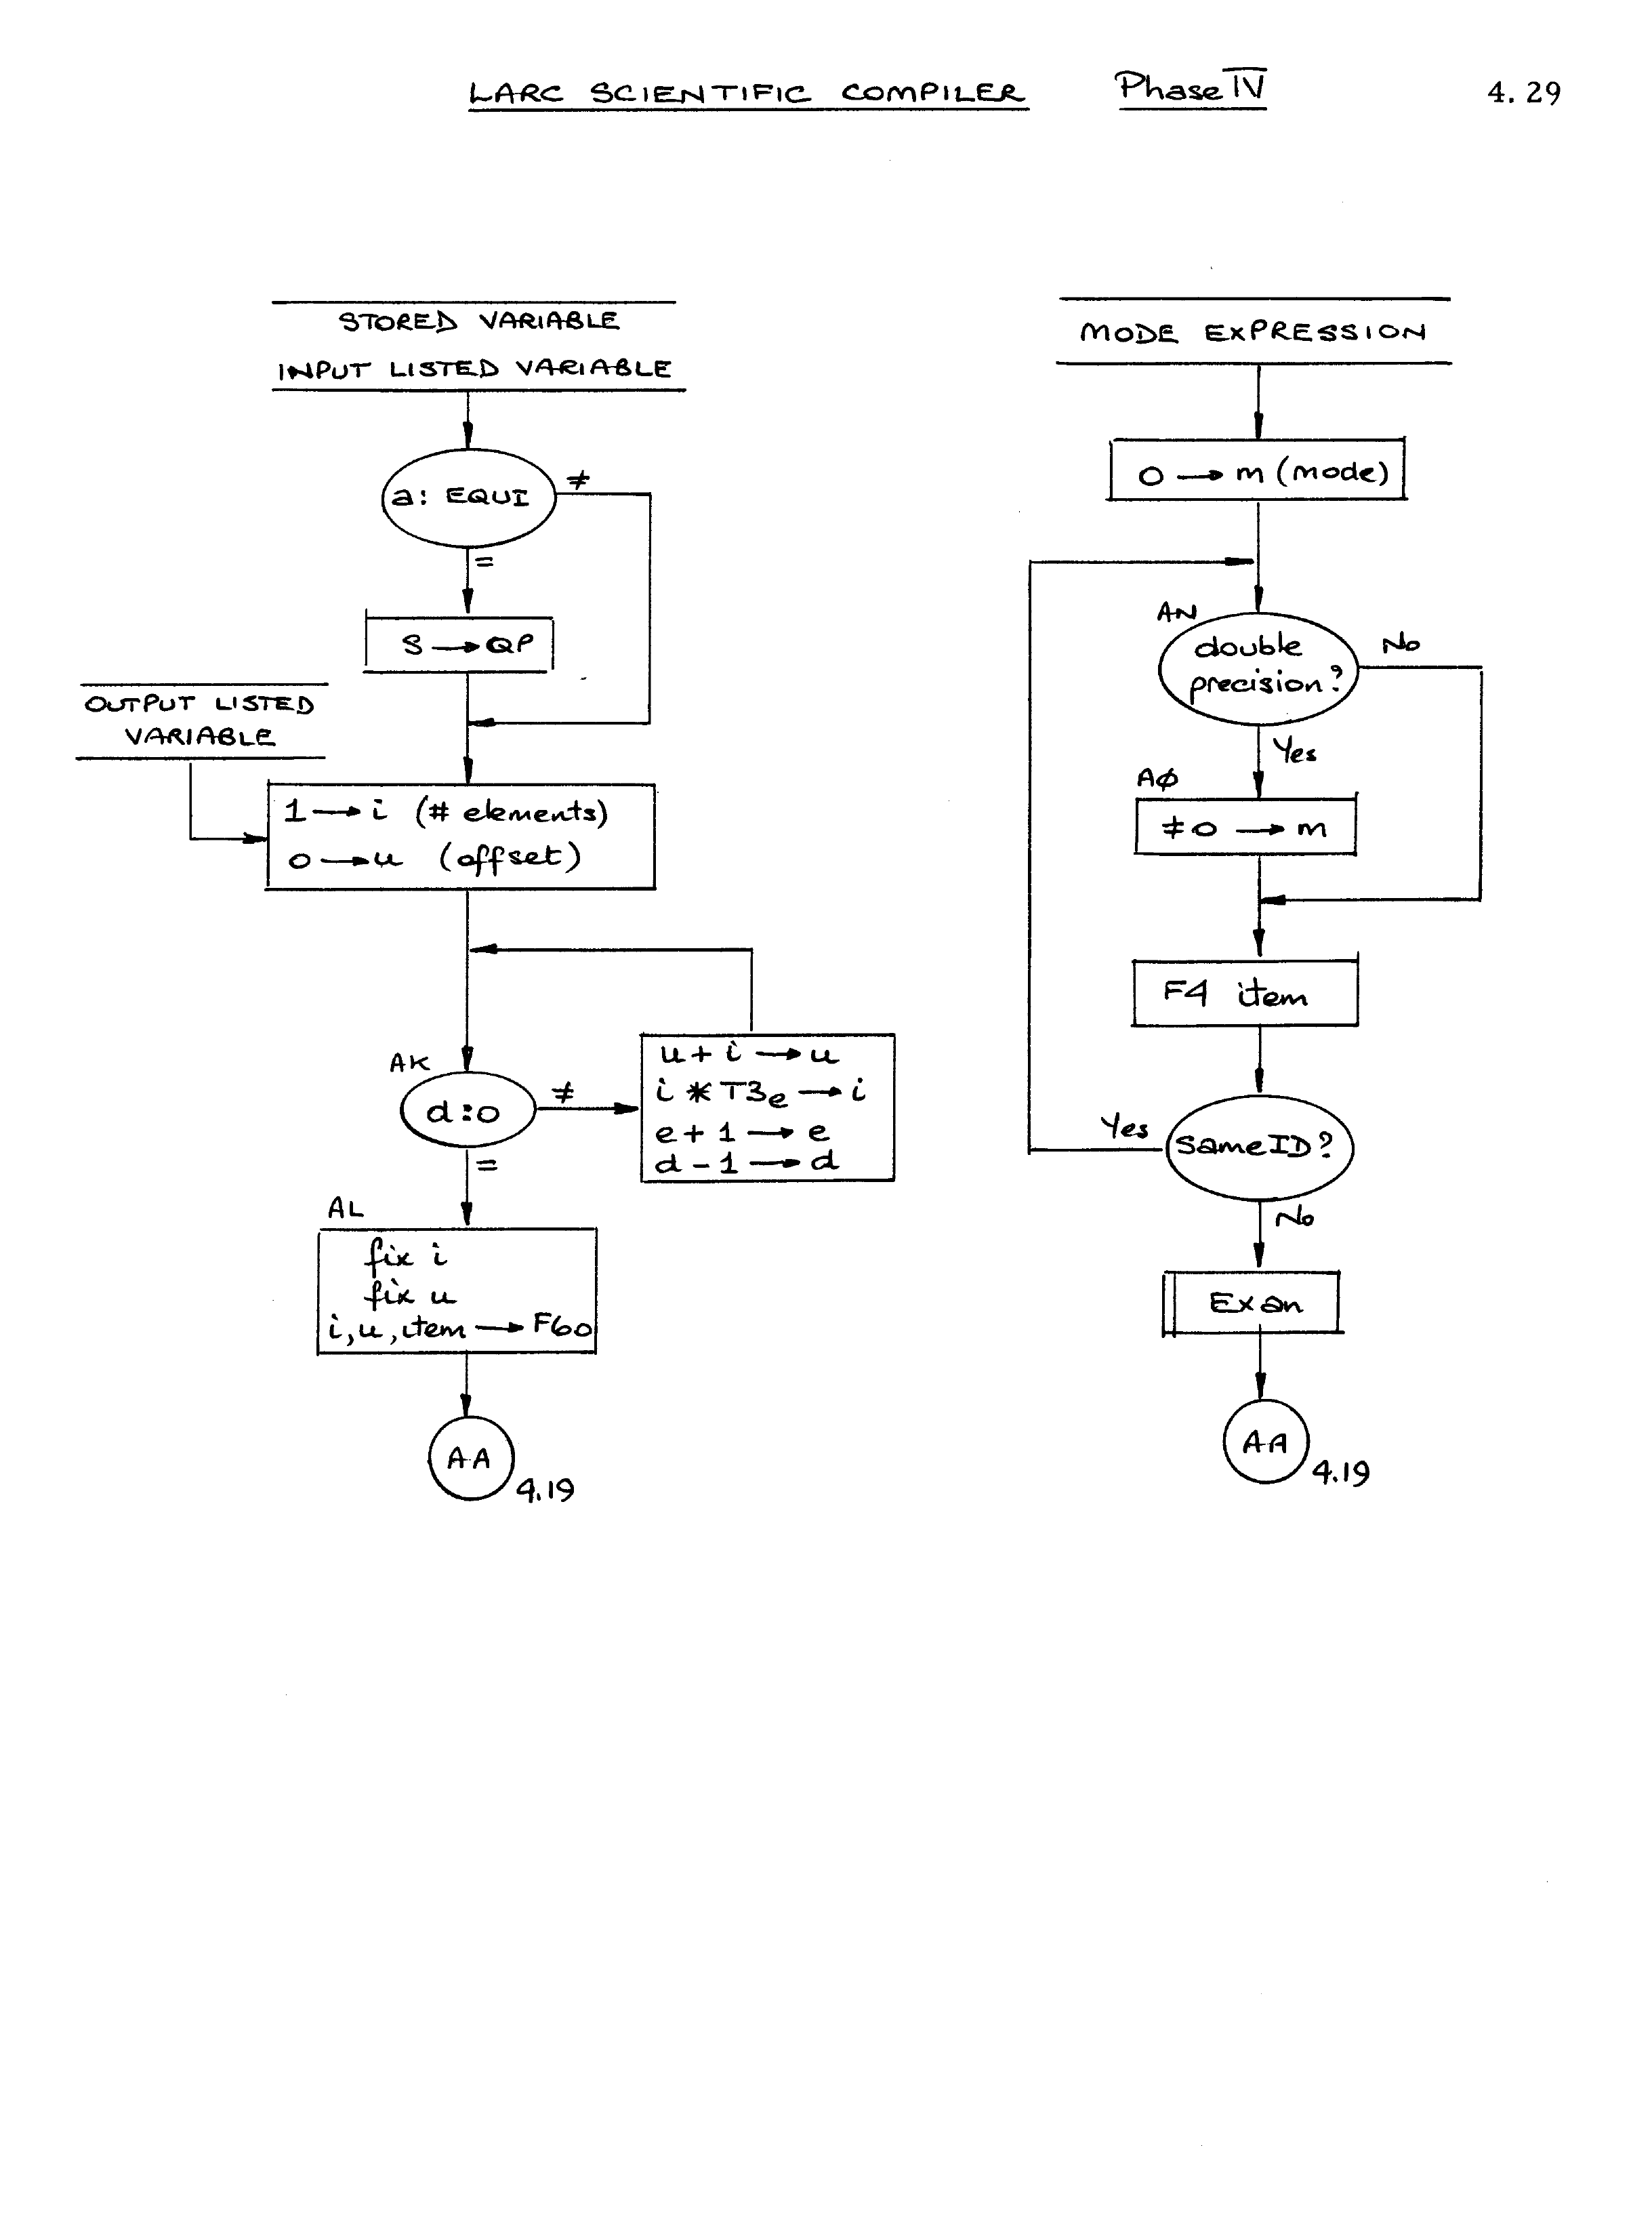 LARC SCIENTIFIC COMPILER Phase IV 4.29
STORED VARIABLE
INPUT LISTED VARIABLE
a: EQUI ≠
=
S → QP
OUTPUT LISTED
VARIABLE
1 → i (# elements)
0 → u (offset)
AK
d:0 ≠
=
u + i → u
i * T3e → i
e + 1 → e
d - 1 → d
AL
fix i
fix u
i, u, item → F60
AA
4.19
MODE EXPRESSION
0 → m (mode)
AN
double
precision?
No
Yes
AØ
≠ 0 → m
F4 item
Yes
Same ID?
No
Exan
AA
4.19